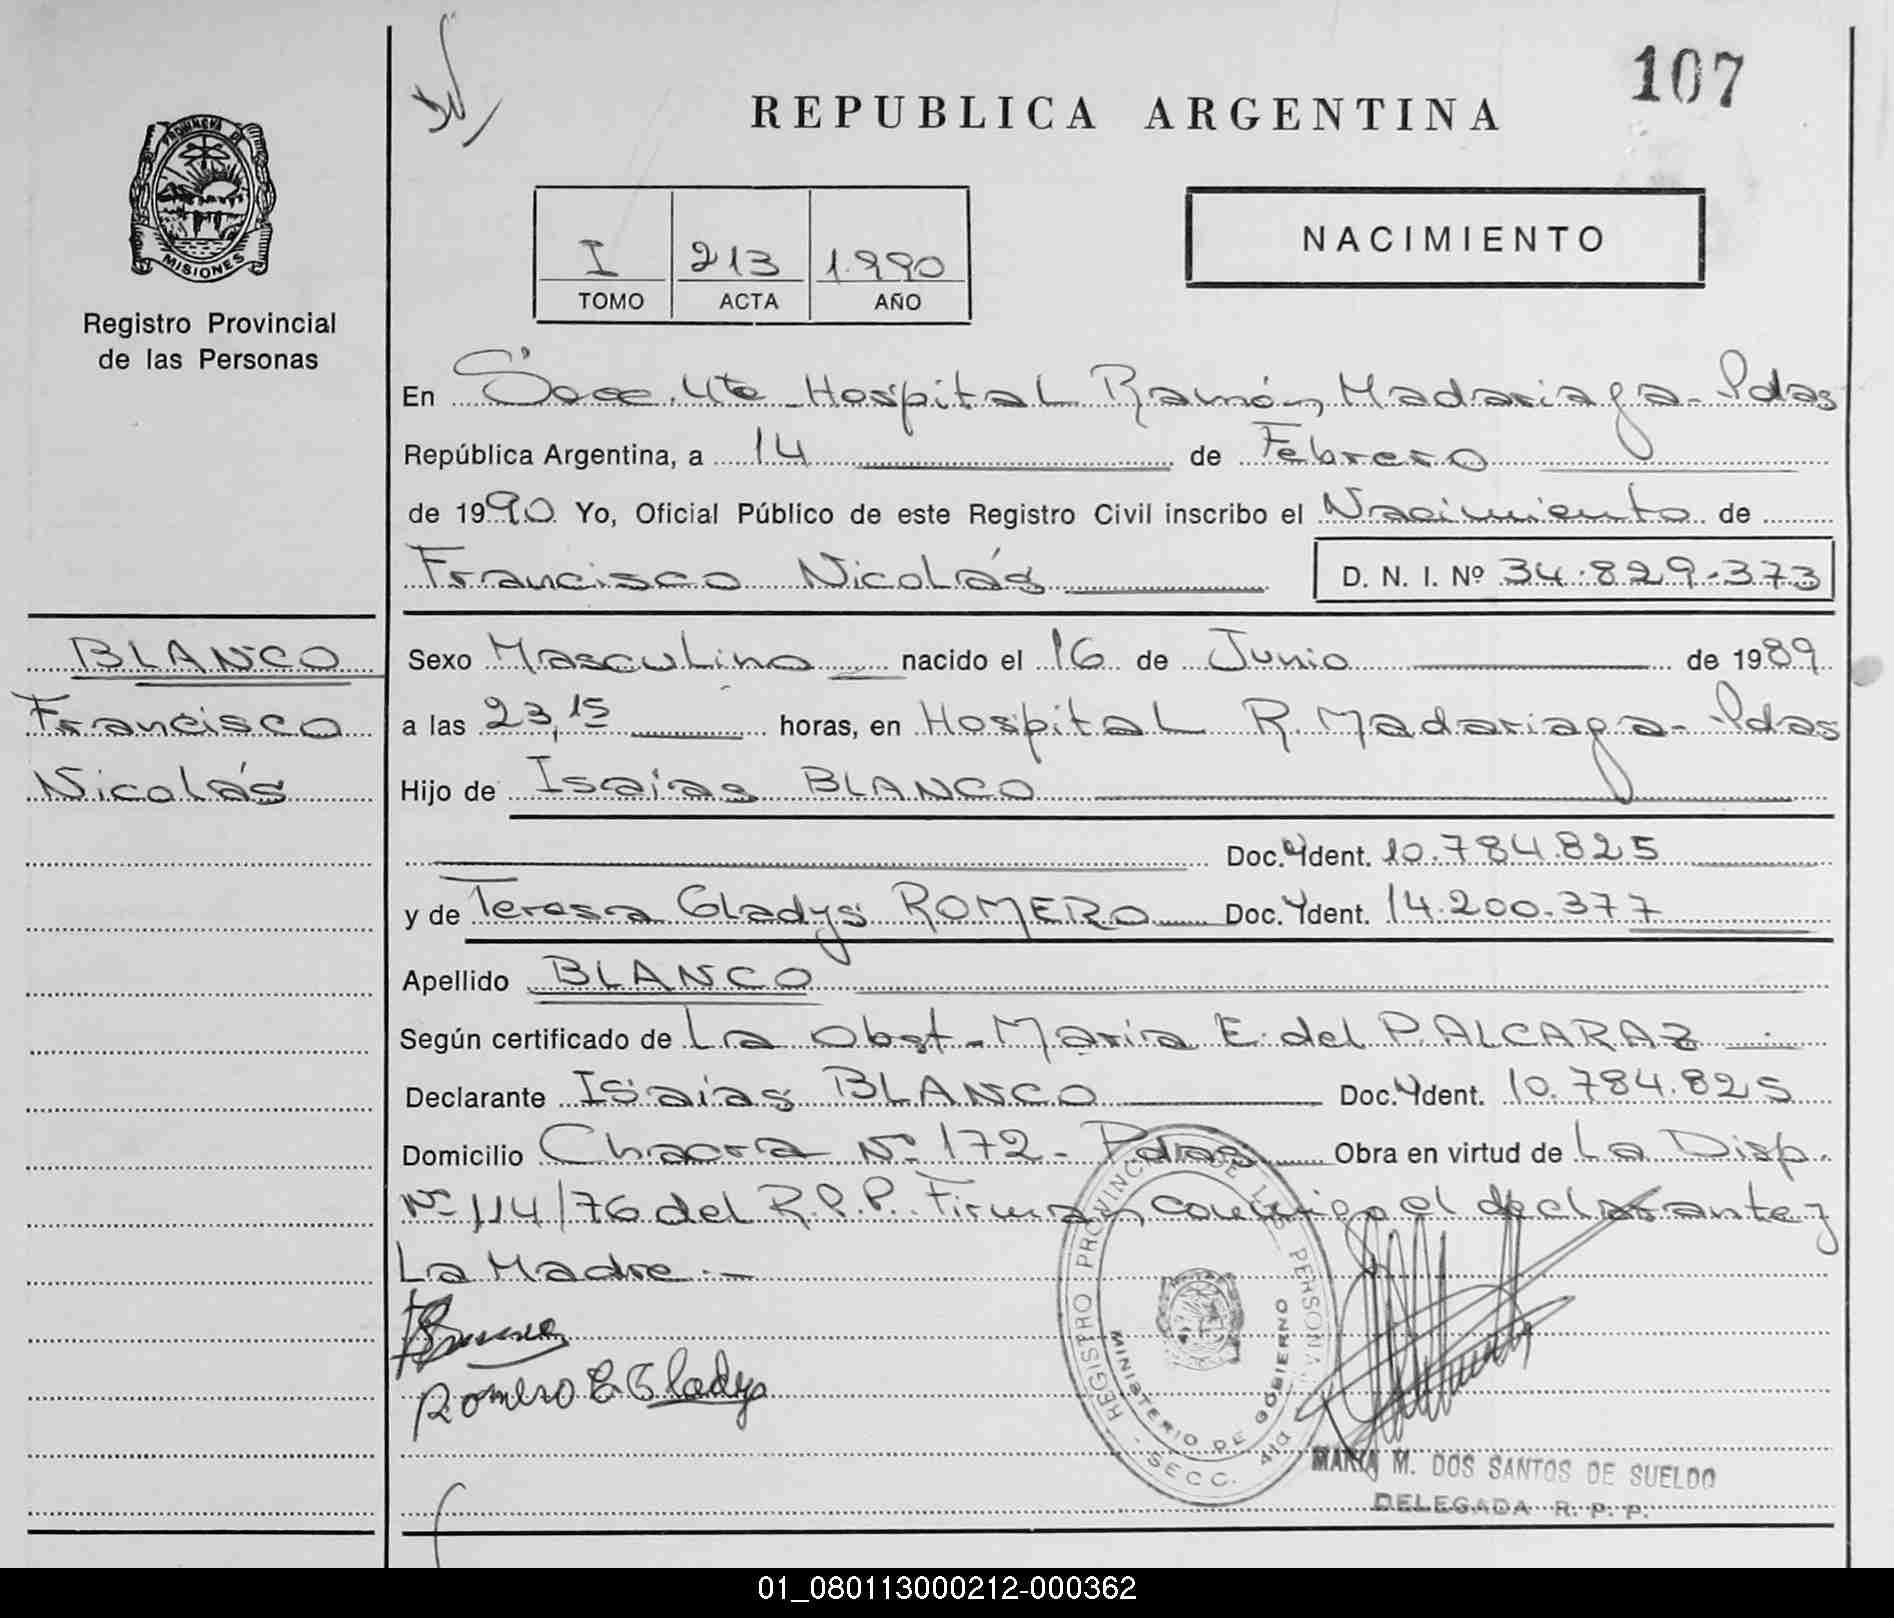 107
REPUBLICA ARGENTINA
PROVINCIA DE
MISIONES
Registro Provincial
de las Personas
I 213 1.990
TOMO ACTA AÑO
NACIMIENTO
En Secc. 4ta Hospital Ramón Madariaga - Pdas
República Argentina, a 14 de Febrero
de 1990 Yo, Oficial Público de este Registro Civil inscribo el Nacimiento de
Francisco Nicolás D. N. I. Nº 34.829.373
BLANCO
Francisco
Nicolás
Sexo Masculino nacido el 16 de Junio de 1989
a las 23,15 horas, en Hospital R. Madariaga - Pdas
Hijo de Isaias BLANCO
Doc. Ydent. 10.784.825
y de Teresa Gladys ROMERO Doc. Ydent. 14.200.377
Apellido BLANCO
Según certificado de La Obst. María E. del P. ALCARAZ
Declarante Isaias BLANCO Doc. Ydent. 10.784.825
Domicilio Chacra Nº 172 - Pdas Obra en virtud de La Disp.
Nº 114/76 del R.P.P. Firman conmigo el declarante y
La Madre.-
Romero Gladys
REGISTRO PROVINCIAL DE LAS PERSONAS
MINISTERIO DE GOBIERNO
SECC. 4ta
MARIA M. DOS SANTOS DE SUELDO
DELEGADA R. P. P.
01_080113000212-000362